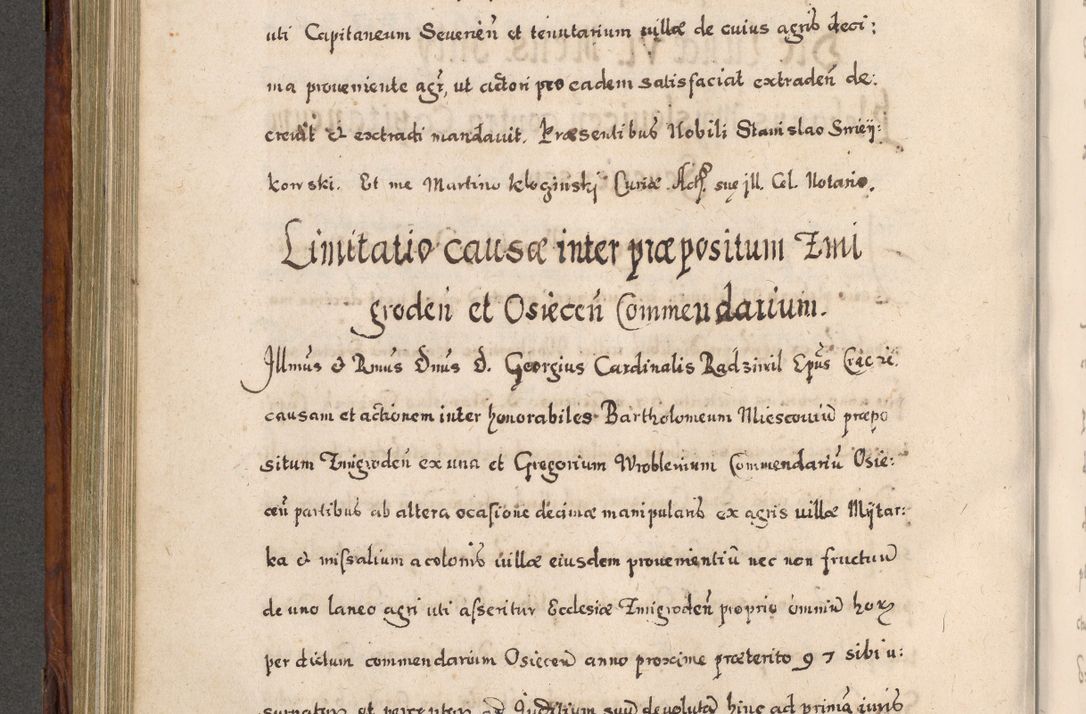 uti Capitaneum Severień et tenutarium villæ de cuius agris deci:
ma proveniente agr̃, ut actori pro eadem satisfaciat extradeń de:
crevit & extradi mandavit. Præsentibus Nobili Stanislao Smieÿ:
kowski. Et me Martino Kłoginskj Curiæ Actr. suę jll. Cel. Notario.
Limitatio causæ inter præpositum Zmi
grodeń et Osieceń Commendarium.
Jllmus & Rmus Dnus D. Georgius Cardinalis Radziwil Epũs
causam et actionem inter honorabiles Bartholomeum Miescoviũ præpo
situm Zmigrodeń ex una et Gregorium Wroblevium Commendariũ Osie:
ceń partibus ab altera ocasione decimæ manipularis ex agris villæ Mÿtar:
ka & missalium a colonis villæ eiusdem provenientiũ nec non fructuũ
de uno laneo agri uti asseritur Ecclesiæ Zmigrodeń proprio omniũ horꝝ
per dictum commendarium Osiecen̄ anno proxime præterito 97 sibi u:
surpatoꝝ et perceptoꝝ ad Juditium suũ devolutā hinc ad primā iuris